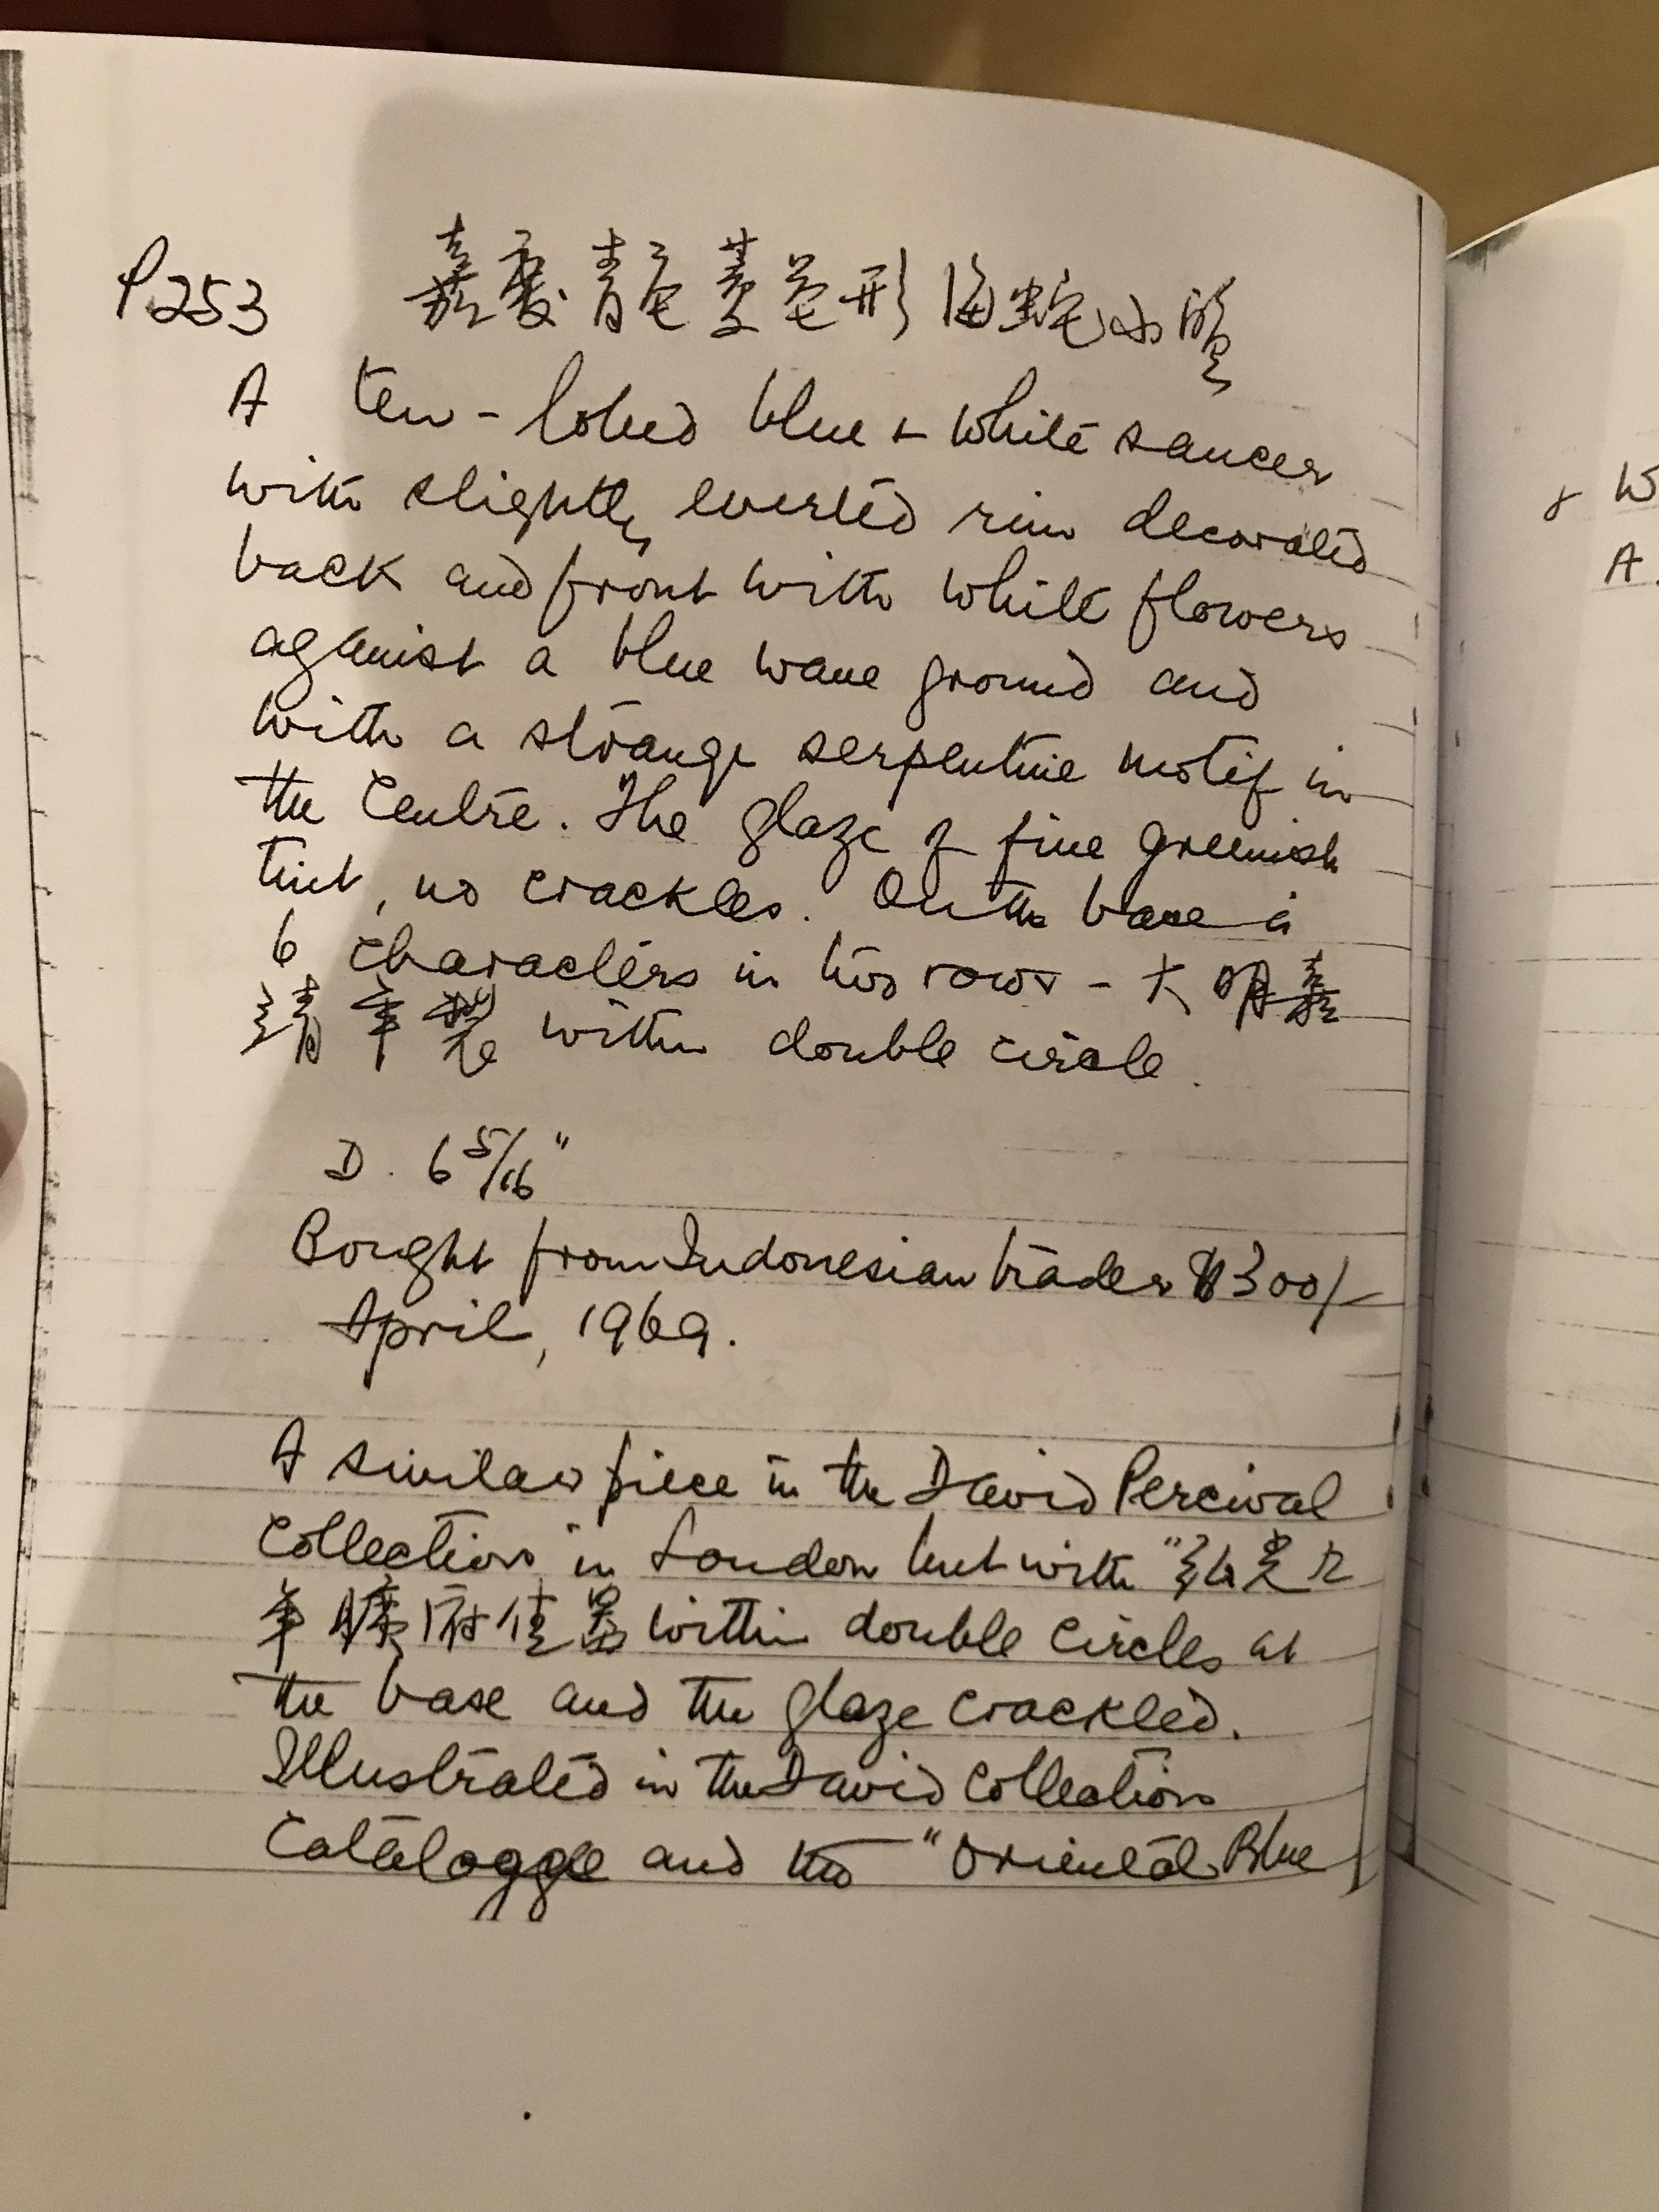 P253 嘉慶青花菱花形海蛇小盤
A ten-lobed blue & white saucer
with slightly everted rim decorated
back and front with white flowers
against a blue wave ground and
with a strange serpentine motif in
the centre. The glaze of fine greenish
tint, no crackles. On the base is
6 characters in two rows - 大明嘉
靖年製 within double circle.
D. 6 5/16"
Bought from Indonesian trader $300/-
April, 1969.
A similar piece in the David Percival
Collection in London but with "
年 府佳器 within double circles at
the base and the glaze crackled.
Illustrated in the David Collection
Catalogge and the "Oriental Blue
& W
A